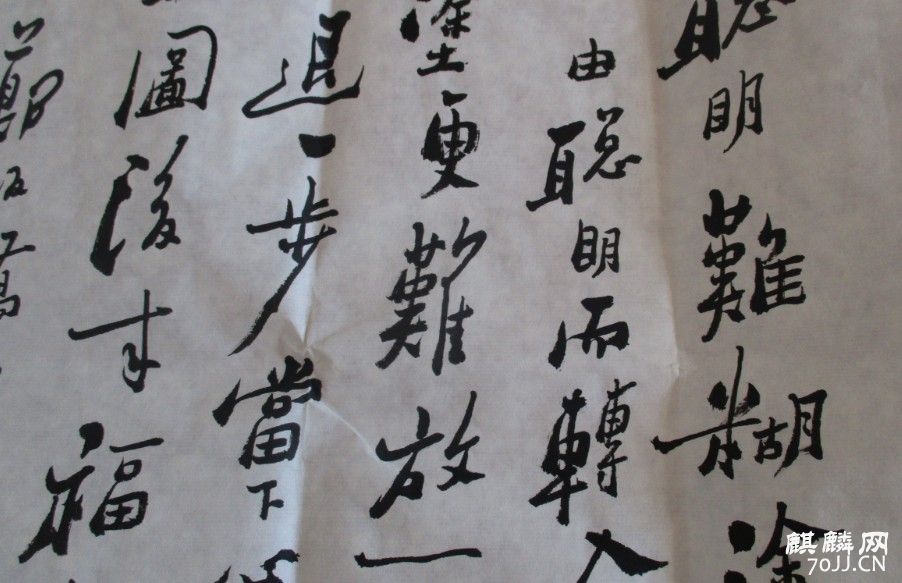 聰明難糊塗
由聰明而轉入
塗更難放一
退一步當下
圖後来福
鄭板橋
麒麟网
70JJ.CN